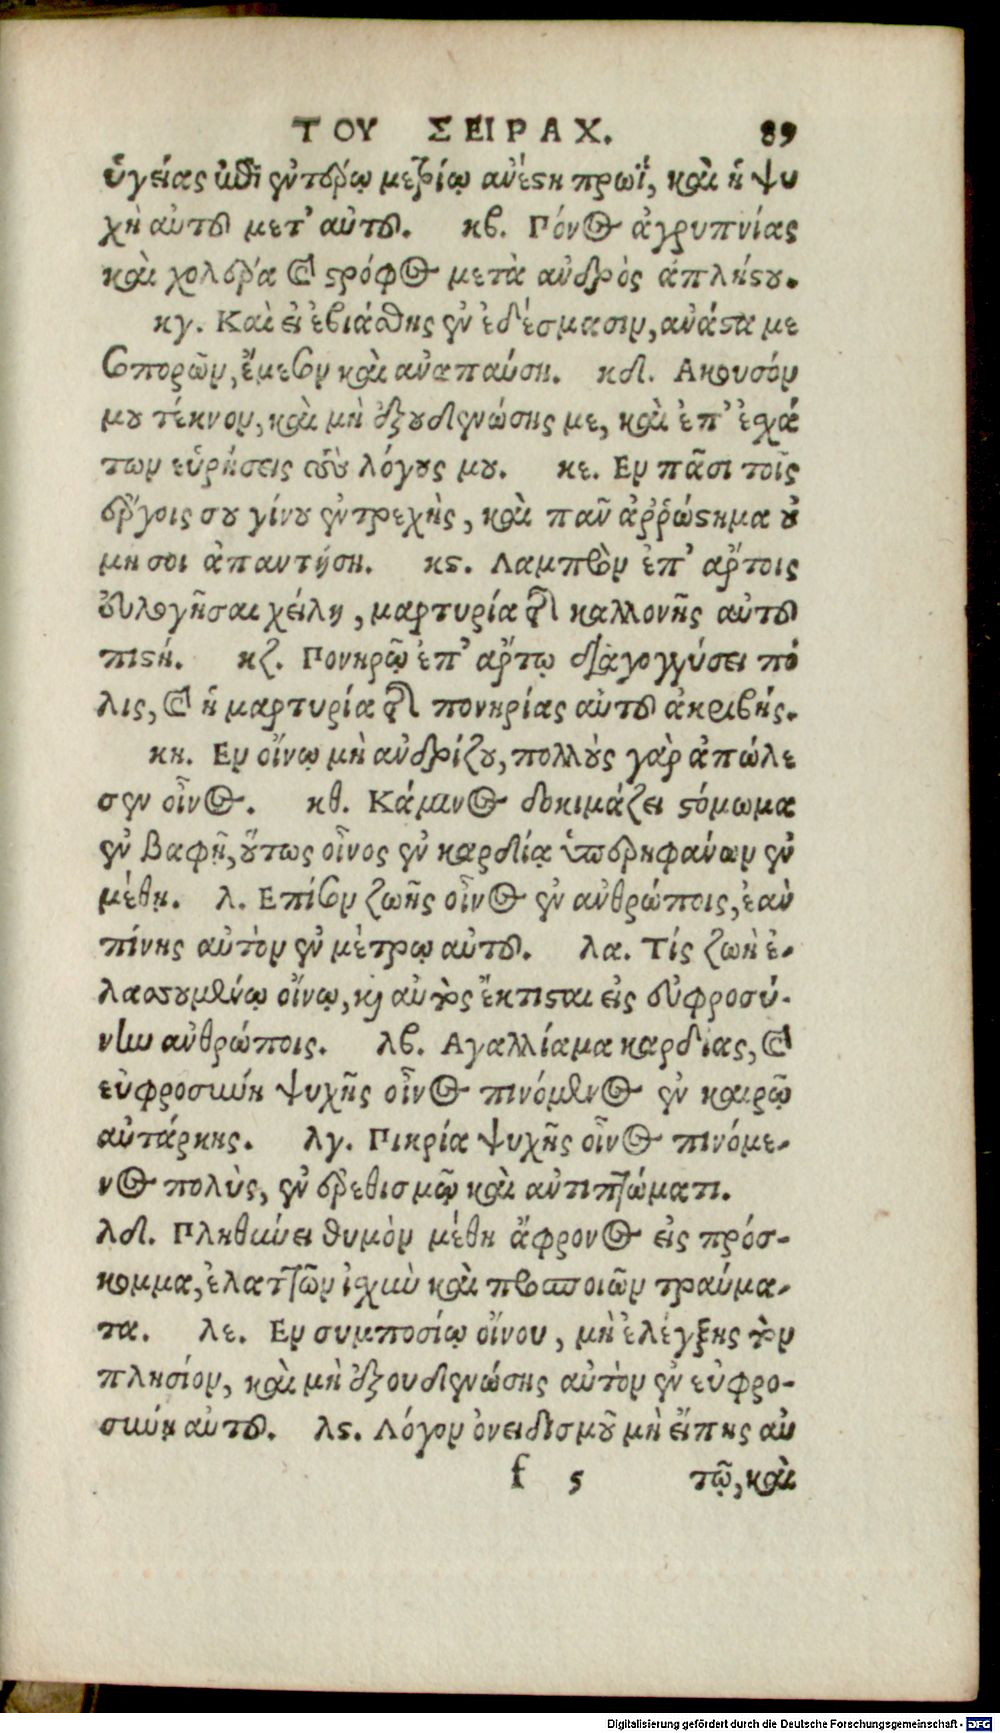 ΤΟΥ ΣΕΙΡΑΧ. 89
ὑγείας ἐπὶ ἐντέρῳ μετρίῳ ἀνέστη πρωΐ, καὶ ἡ ψυ
χὴ αὐτοῦ μετ' αὐτοῦ. κβ. Πόνος ἀγρυπνίας
καὶ χολέρα καὶ στρόφος μετὰ ἀνδρὸς ἀπλήστου.
κγ. Καὶ εἰ ἐβιάσθης ἐν ἐδέσμασιν, ἀνάστα με
σοπορῶν, ἔμεσον καὶ ἀναπαύσῃ. κδ. Ακουσόν
μου τέκνον, καὶ μὴ ἐξουδενώσης με, καὶ ἐπ' ἐσχά
των εὑρήσεις τοὺς λόγους μου. κε. Εν πᾶσι τοῖς
ἔργοις σου γίνου ἐντρεχὴς, καὶ πᾶν ἀῤῥώστημα οὐ
μη σοι ἀπαντήσῃ. κϛ. Λαμπρὸν ἐπ' ἄρτοις
εὐλογῆσαι χείλη, μαρτυρία τῆς καλλονῆς αὐτοῦ
πιστή. κζ. Πονηρῷ ἐπ' ἄρτῳ διαγογγύσει πό
λις, καὶ ἡ μαρτυρία τῆς πονηρίας αὐτοῦ ἀκριβής.
κη. Εν οἴνῳ μὴ ἀνδρίζου, πολλοὺς γὰρ ἀπώλε
σεν οἶνος. κθ. Κάμινος δοκιμάζει στόμωμα
ἐν βαφῇ, οὕτως οἶνος ἐν καρδίᾳ ὑπερηφάνων ἐν
μέθῃ. λ. Επίσον ζωῆς οἶνος ἐν ἀνθρώποις, ἐαν
πίνης αὐτὸν ἐν μέτρῳ αὐτοῦ. λα. Τίς ζωὴ ἐ-
λασσουμένῳ οἴνῳ, καὶ αὐτὸς ἔκτισται εἰς εὐφροσύ-
νην ἀνθρώποις. λβ. Αγαλλίαμα καρδίας, καὶ
εὐφροσύνη ψυχῆς οἶνος πινόμενος ἐν καιρῷ
αὐτάρκης. λγ. Πικρία ψυχῆς οἶνος πινόμε-
νος πολὺς, ἐν ἐρεθισμῷ καὶ ἀντιπτώματι.
λδ. Πληθύνει θυμὸν μέθη ἄφρονος εἰς πρόσ-
κομμα, ἐλαττῶν ἰσχὺν καὶ προσποιῶν τραύμα-
τα. λε. Εν συμποσίῳ οἴνου, μὴ ἐλέγξης τὸν
πλησίον, καὶ μὴ ἐξουδενώσης αὐτὸν ἐν εὐφρο-
σύνῃ αὐτοῦ. λϛ. Λόγον ὀνειδισμοῦ μὴ εἴπης αὐ
f 5 τῷ, καὶ
Digitalisierung gefördert durch die Deutsche Forschungsgemeinschaft - DFG